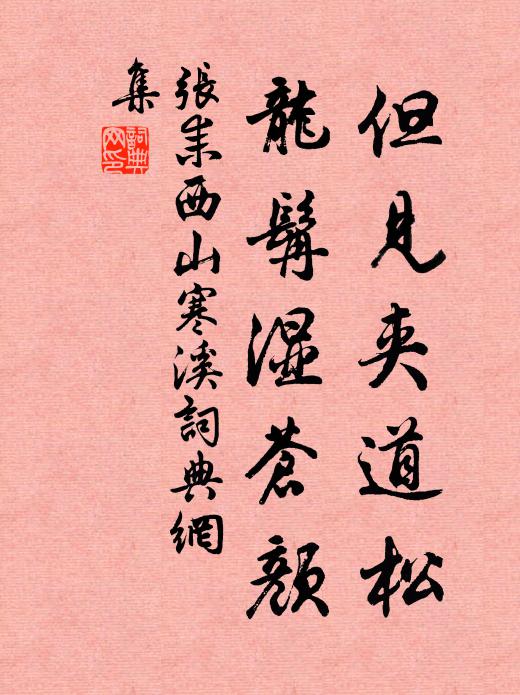 但見夾道松
龍髯湿蒼顏
張耒西山寒溪詞典網
集
詞典
网印